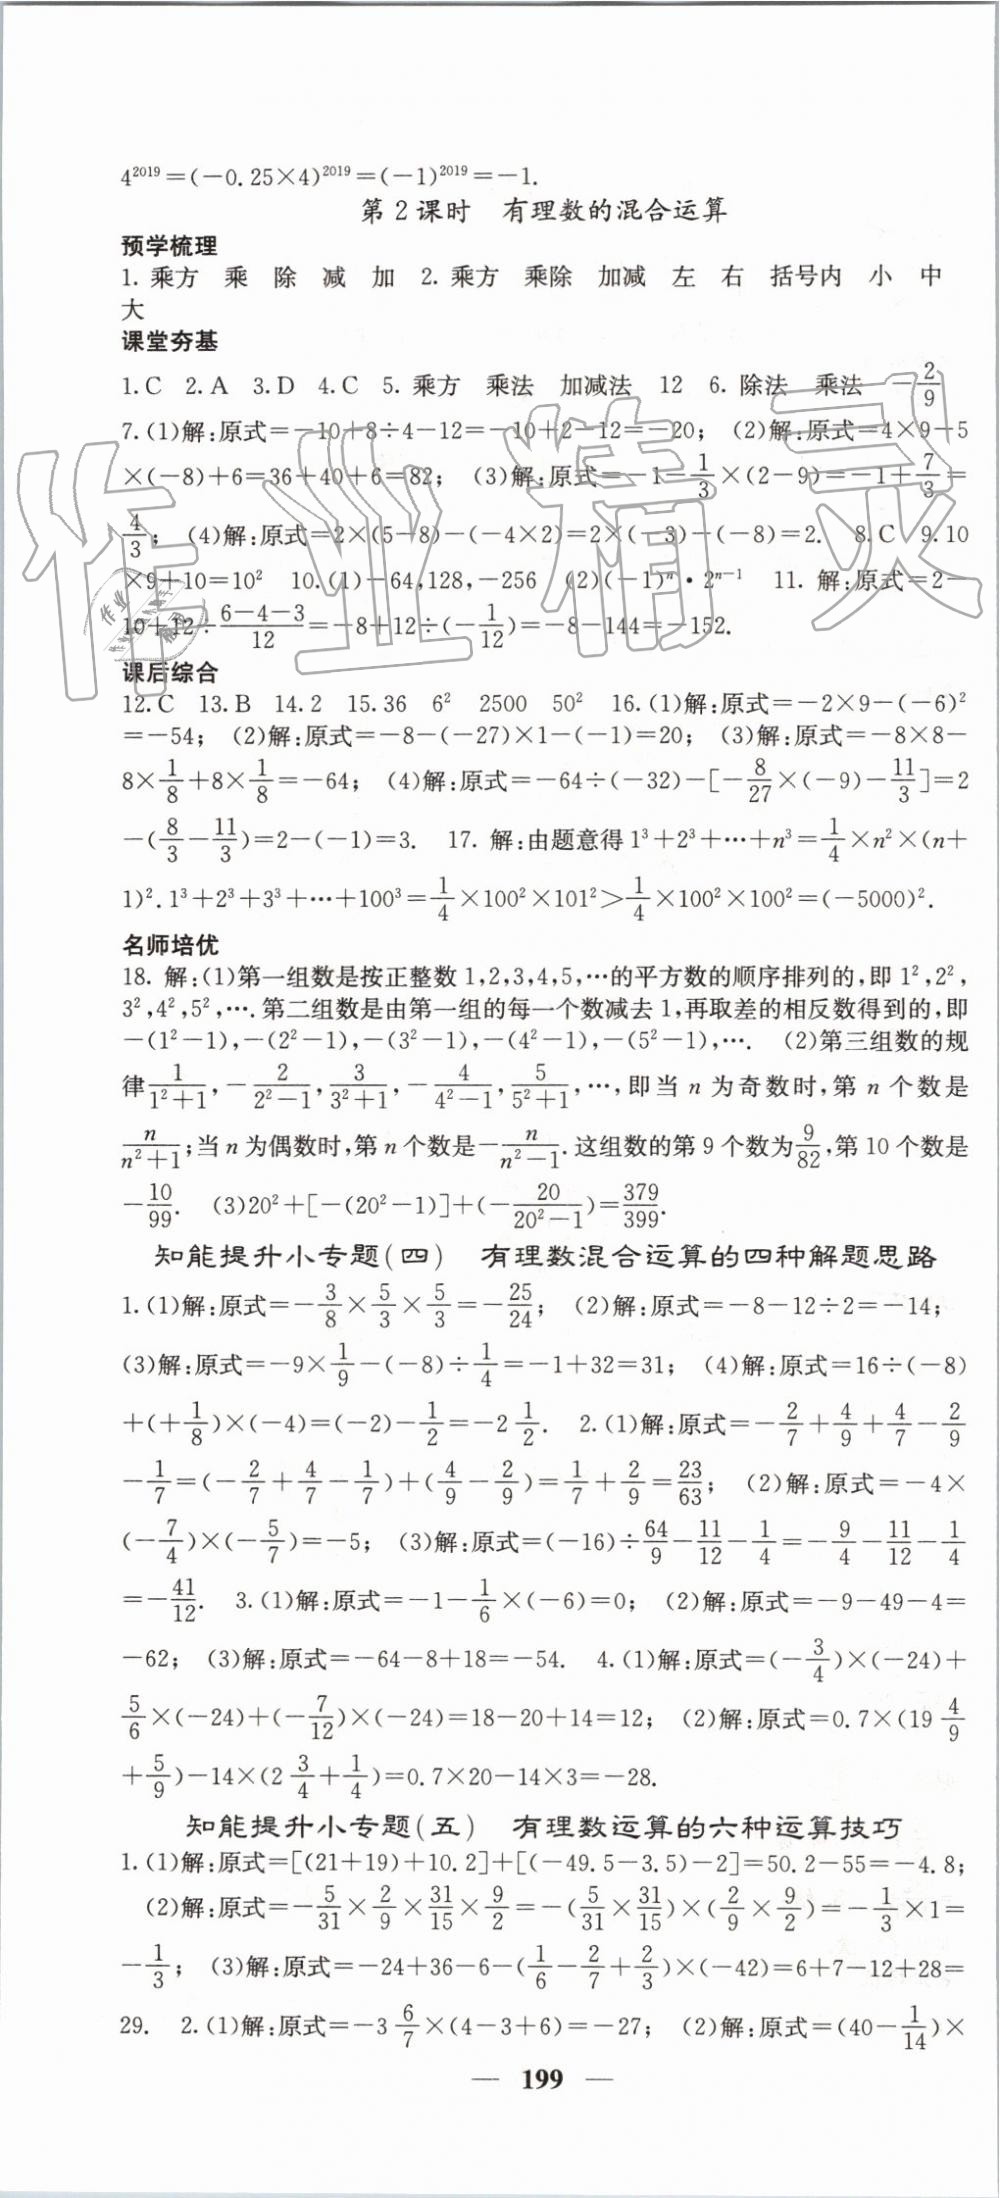 4²⁰¹⁹=(-0.25×4)²⁰¹⁹=(-1)²⁰¹⁹=-1.
第2课时 有理数的混合运算
预学梳理
1. 乘方 乘 除 减 加 2. 乘方 乘除 加减 左 右 括号内 小 中
大
课堂夯基
1.C 2.A 3.D 4.C 5. 乘方 乘法 加减法 12 6. 除法 乘法 -2/9
7.(1)解:原式=-10+8÷4-12=-10+2-12=-20; (2)解:原式=4×9-5
×(-8)+6=36+40+6=82; (3)解:原式=-1-1/3×(2-9)=-1+7/3=
4/3; (4)解:原式=2×(5-8)-(-4×2)=2×(-3)-(-8)=2. 8.C 9.10
×9+10=10² 10.(1)-64,128,-256 (2)(-1)ⁿ·2ⁿ⁻¹ 11. 解:原式=2-
10+12÷(6-4-3)/12=-8+12÷(-1/12)=-8-144=-152.
课后综合
12.C 13.B 14.2 15.36 6² 2500 50² 16.(1)解:原式=-2×9-(-6)²
=-54; (2)解:原式=-8-(-27)×1-(-1)=20; (3)解:原式=-8×8-
8×1/8+8×1/8=-64; (4)解:原式=-64÷(-32)-[-8/27×(-9)-11/3]=2
-(8/3-11/3)=2-(-1)=3. 17. 解:由题意得1³+2³+…+n³=1/4×n²×(n+
1)².1³+2³+3³+…+100³=1/4×100²×101²>1/4×100²×100²=(-5000)².
名师培优
18. 解:(1)第一组数是按正整数1,2,3,4,5,…的平方数的顺序排列的,即1²,2²,
3²,4²,5²,…. 第二组数是由第一组的每一个数减去1,再取差的相反数得到的,即
-(1²-1),-(2²-1),-(3²-1),-(4²-1),-(5²-1),…. (2)第三组数的规
律1/(1²+1),-2/(2²-1),3/(3²+1),-4/(4²-1),5/(5²+1),…,即当n为奇数时,第n个数是
n/(n²+1);当n为偶数时,第n个数是-n/(n²-1).这组数的第9个数为9/82,第10个数是
-10/99. (3)20²+[-(20²-1)]+(-20/(20²-1))=379/399.
知能提升小专题(四) 有理数混合运算的四种解题思路
1.(1)解:原式=-3/8×5/3×5/3=-25/24; (2)解:原式=-8-12÷2=-14;
(3)解:原式=-9×1/9-(-8)÷1/4=-1+32=31; (4)解:原式=16÷(-8)
+(+1/8)×(-4)=(-2)-1/2=-2 1/2. 2.(1)解:原式=-2/7+4/9+4/7-2/9
-1/7=(-2/7+4/7-1/7)+(4/9-2/9)=1/7+2/9=23/63; (2)解:原式=-4×
(-7/4)×(-5/7)=-5; (3)解:原式=(-16)÷64/9-11/12-1/4=-9/4-11/12-1/4
=-41/12. 3.(1)解:原式=-1-1/6×(-6)=0; (2)解:原式=-9-49-4=
-62; (3)解:原式=-64-8+18=-54. 4.(1)解:原式=(-3/4)×(-24)+
5/6×(-24)+(-7/12)×(-24)=18-20+14=12; (2)解:原式=0.7×(19 4/9
+5/9)-14×(2 3/4+1/4)=0.7×20-14×3=-28.
知能提升小专题(五) 有理数运算的六种运算技巧
1.(1)解:原式=[(21+19)+10.2]+[(-49.5-3.5)-2]=50.2-55=-4.8;
(2)解:原式=-5/31×2/9×31/15×9/2=-(5/31×31/15)×(2/9×9/2)=-1/3×1=
-1/3; (3)解:原式=-24+36-6-(1/6-2/7+2/3)×(-42)=6+7-12+28=
29. 2.(1)解:原式=-3 6/7×(4-3+6)=-27; (2)解:原式=(40-1/14)×
— 199 —
作业精灵